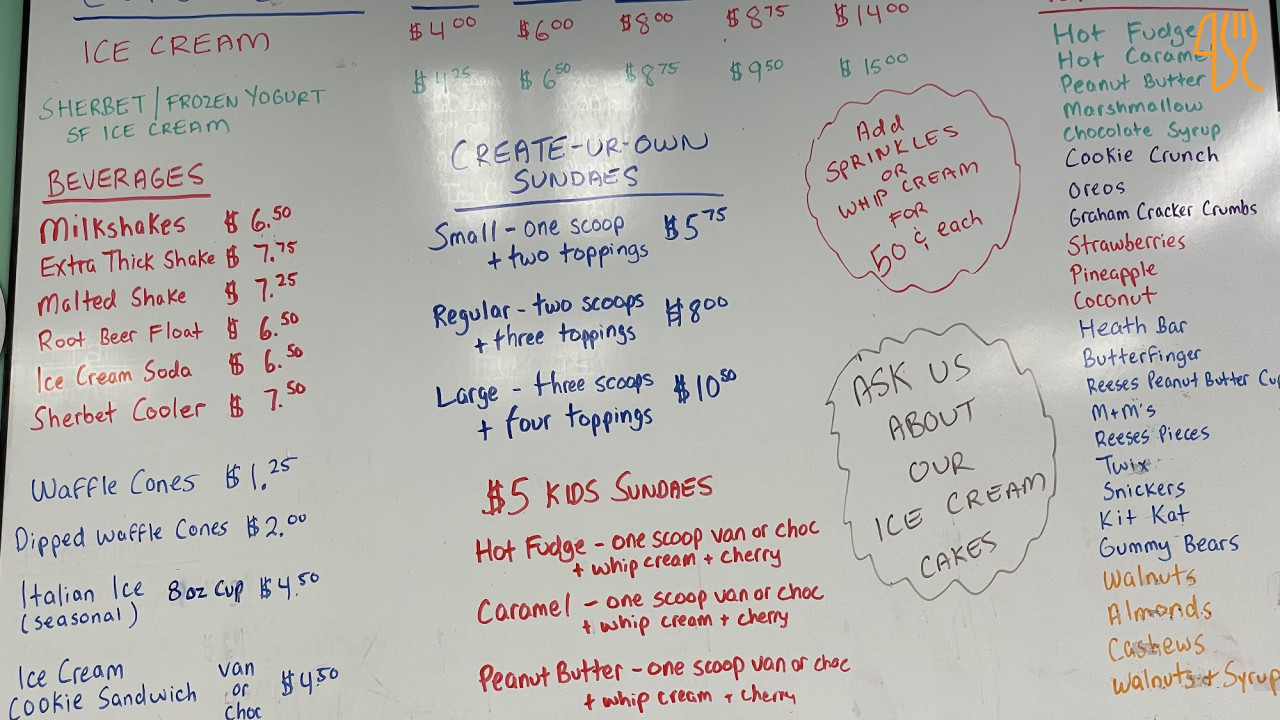 ICE CREAM $4.00 $6.00 $8.00 $8.75 $14.00
SHERBET/FROZEN YOGURT $4.25 $6.50 $8.75 $9.50 $15.00
SF ICE CREAM
BEVERAGES
Milkshakes $6.50
Extra Thick Shake $7.75
Malted Shake $7.25
Root Beer Float $6.50
Ice Cream Soda $6.50
Sherbet Cooler $7.50
Waffle Cones $1.25
Dipped Waffle Cones $2.00
Italian Ice 8oz cup $4.50
(seasonal)
Ice Cream van
Cookie Sandwich or $4.50
choc
CREATE-UR-OWN
SUNDAES
Small - one scoop $5.75
+ two toppings
Regular - two scoops $8.00
+ three toppings
Large - three scoops $10.50
+ four toppings
$5 KIDS SUNDAES
Hot Fudge - one scoop van or choc
+ whip cream + cherry
Caramel - one scoop van or choc
+ whip cream + cherry
Peanut Butter - one scoop van or choc
+ whip cream + cherry
Add
SPRINKLES
OR
WHIP CREAM
FOR
50¢ each
ASK US
ABOUT
OUR
ICE CREAM
CAKES
Hot Fudge
Hot Carame
Peanut Butter
Marshmallow
Chocolate Syrup
Cookie Crunch
Oreos
Graham Cracker Crumbs
Strawberries
Pineapple
Coconut
Heath Bar
Butterfinger
Reeses Peanut Butter Cup
M+M's
Reeses Pieces
Twix
Snickers
Kit Kat
Gummy Bears
Walnuts
Almonds
Cashews
Walnuts + Syrup